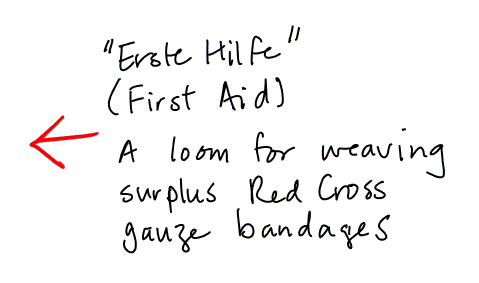 "Erste Hilfe"
(First Aid)
A loom for weaving
surplus Red Cross
gauze bandages